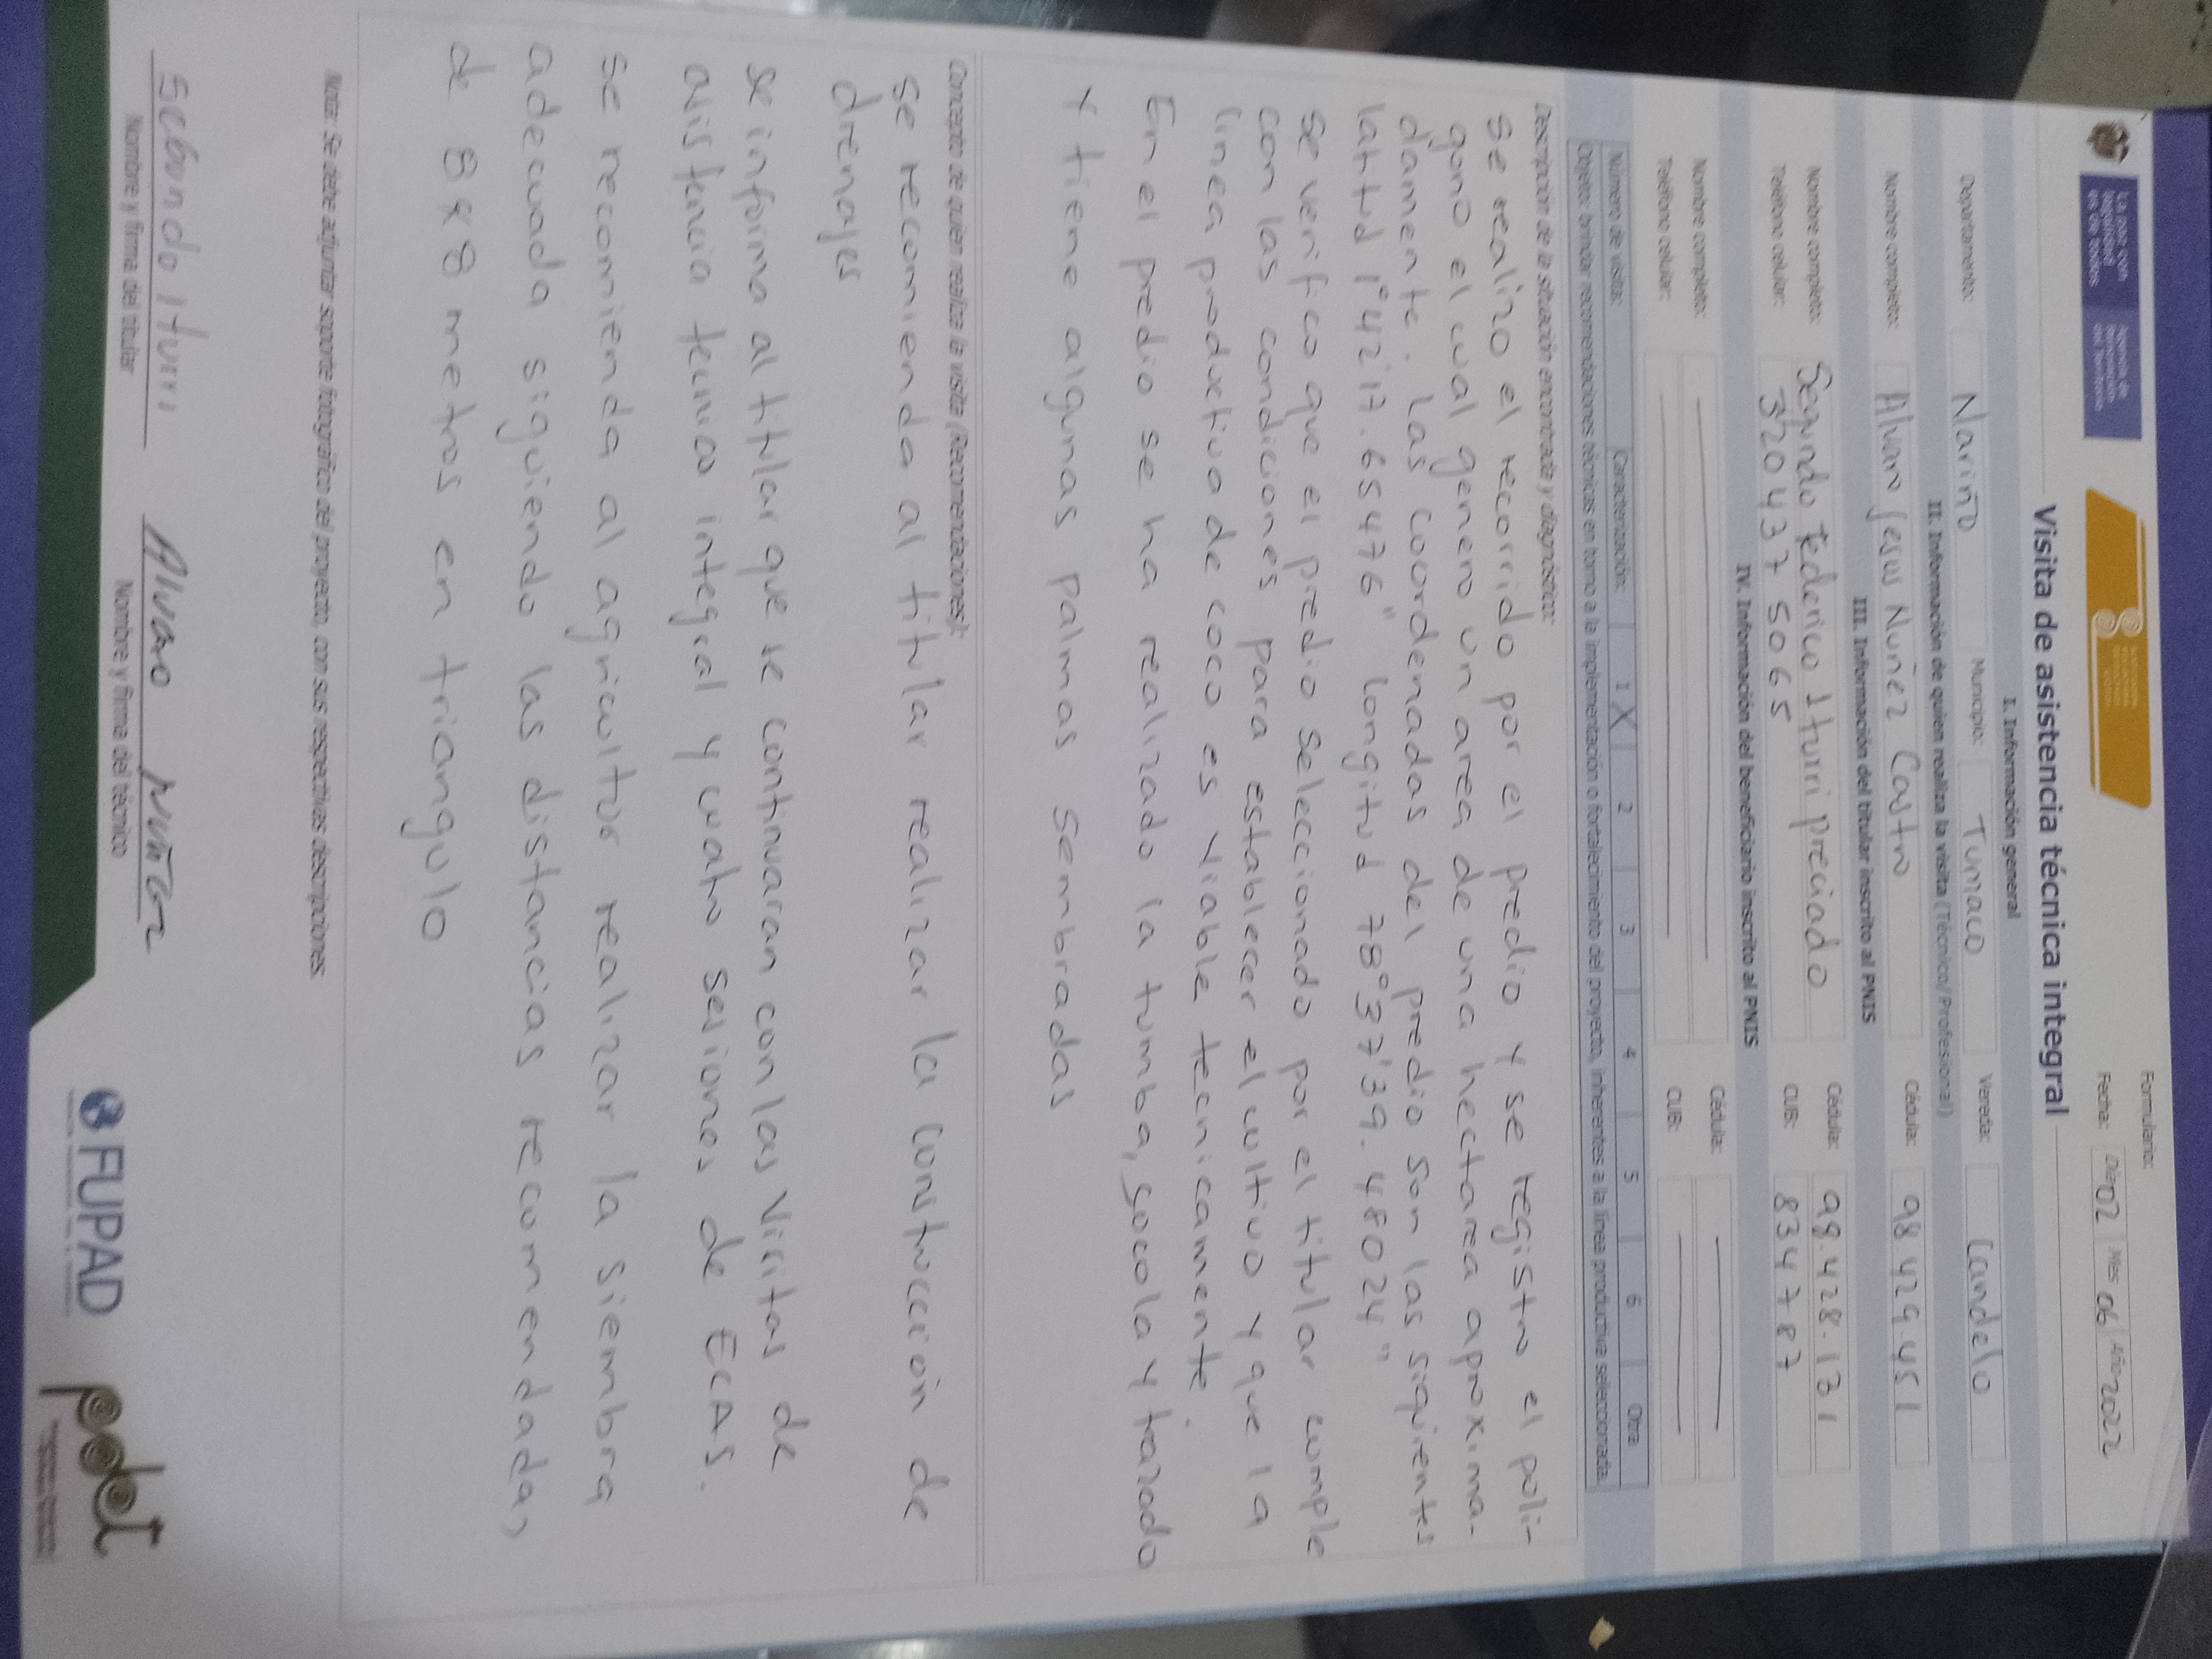 La paz con legalidad es de todos
Agencia de Renovación del Territorio
Formulario:
Fecha: Día 02 Mes 06 Año 2022
Visita de asistencia técnica integral
I. Información general
Departamento: Nariño Municipio: Tumaco Vereda: Candelo
II. Información de quien realiza la visita (Técnico/Profesional)
Nombre completo: Alvaro Jesus Nuñez Castro Cédula: 98.429.451
III. Información del titular inscrito al PNIS
Nombre completo: Segundo Federico Iturri preciado Cédula: 98.428.131
Teléfono celular: 3204375065 CUB: 8347787
IV. Información del beneficiario inscrito al PNIS
Nombre completo: Cédula:
Teléfono celular: CUB:
Número de visita: Caracterización: 1 X 2 3 4 5 6 Otra
Objeto: brindar recomendaciones técnicas en torno a la implementación o fortalecimiento del proyecto, inherentes a la línea productiva seleccionada.
Descripción de la situación encontrada y diagnóstico:
se realizo el recorrido por el predio y se registro el poli-
gono el cual genero un area de una hectarea aproxima-
damente. Las coordenadas del predio son las siguientes
latitud 1°42'17.655476" longitud 78°37'39.480024"
se verifico que el predio seleccionado por el titular cumple
con las condiciones para establecer el cultivo y que la
linea productiva de coco es viable tecnicamente.
En el predio se ha realizado la tumba, socola y trazado
y tiene algunas palmas sembradas
Concepto de quien realiza la visita (Recomendaciones):
se recomienda al titular realizar la construccion de
drenages
se informa al titular que se continuaran con las visitas de
asistencia tecnica integral y cuatro sesiones de ECAS.
se recomienda al agricultor realizar la siembra
adecuada siguiendo las distancias recomendadas,
de 8x8 metros en triangulo
Nota: Se debe adjuntar soporte fotográfico del proyecto, con sus respectivas descripciones.
segundo Iturri Alvaro Nuñez
Nombre y firma del titular Nombre y firma del técnico
FUPAD
podet